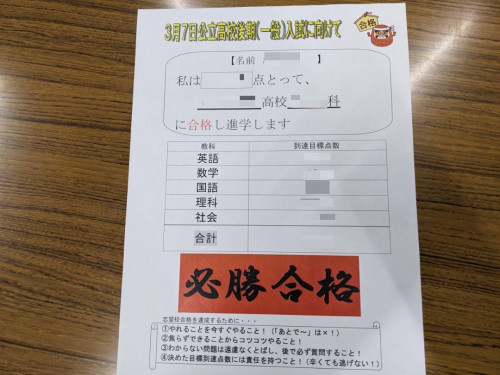 3月7日公立高校後期(一般)入試に向けて
合格
【名前 】
私は 点とって、
高校 科
に合格し進学します
教科 到達目標点数
英語
数学
国語
理科
社会
合計
必勝合格
志望校合格を達成するために・・・
①やれることを今すぐやること!(「あとで〜」は×!)
②焦らずできることからコツコツやること!
③わからない問題は遠慮なくとばし、後で必ず質問すること!
④決めた目標到達点数には責任を持つこと!(辛くても逃げない!)